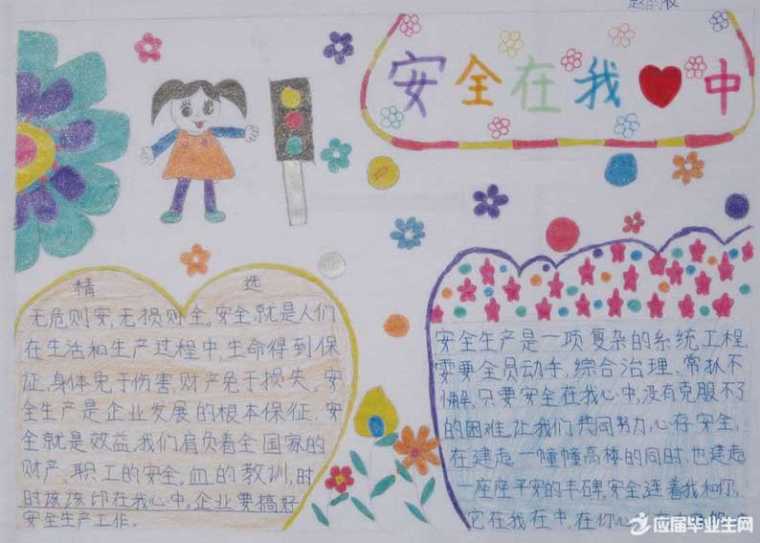 安全在我中
精选
无危则安,无损则全。安全,就是人们
在生活和生产过程中,生命得到保
证,身体免于伤害,财产免于损失。安
全生产是企业发展的根本保征.安
全就是效益。我们肩负着全国家的
财产、职工的安全,血的教训,时
时该该印在我心中,企业要搞好
安全生产工作。
安全生产是一项复杂的系统工程,
需要全员动手,综合治理、常抓不
懈。只要安全在我心中,没有克服不了
的困难,让我们共同努力,心存安全,
在建造一幢幢高楼的同时,也建造
一座座平安的丰碑,安全连着我和你,
它在我在中,在你心
应届毕业生网